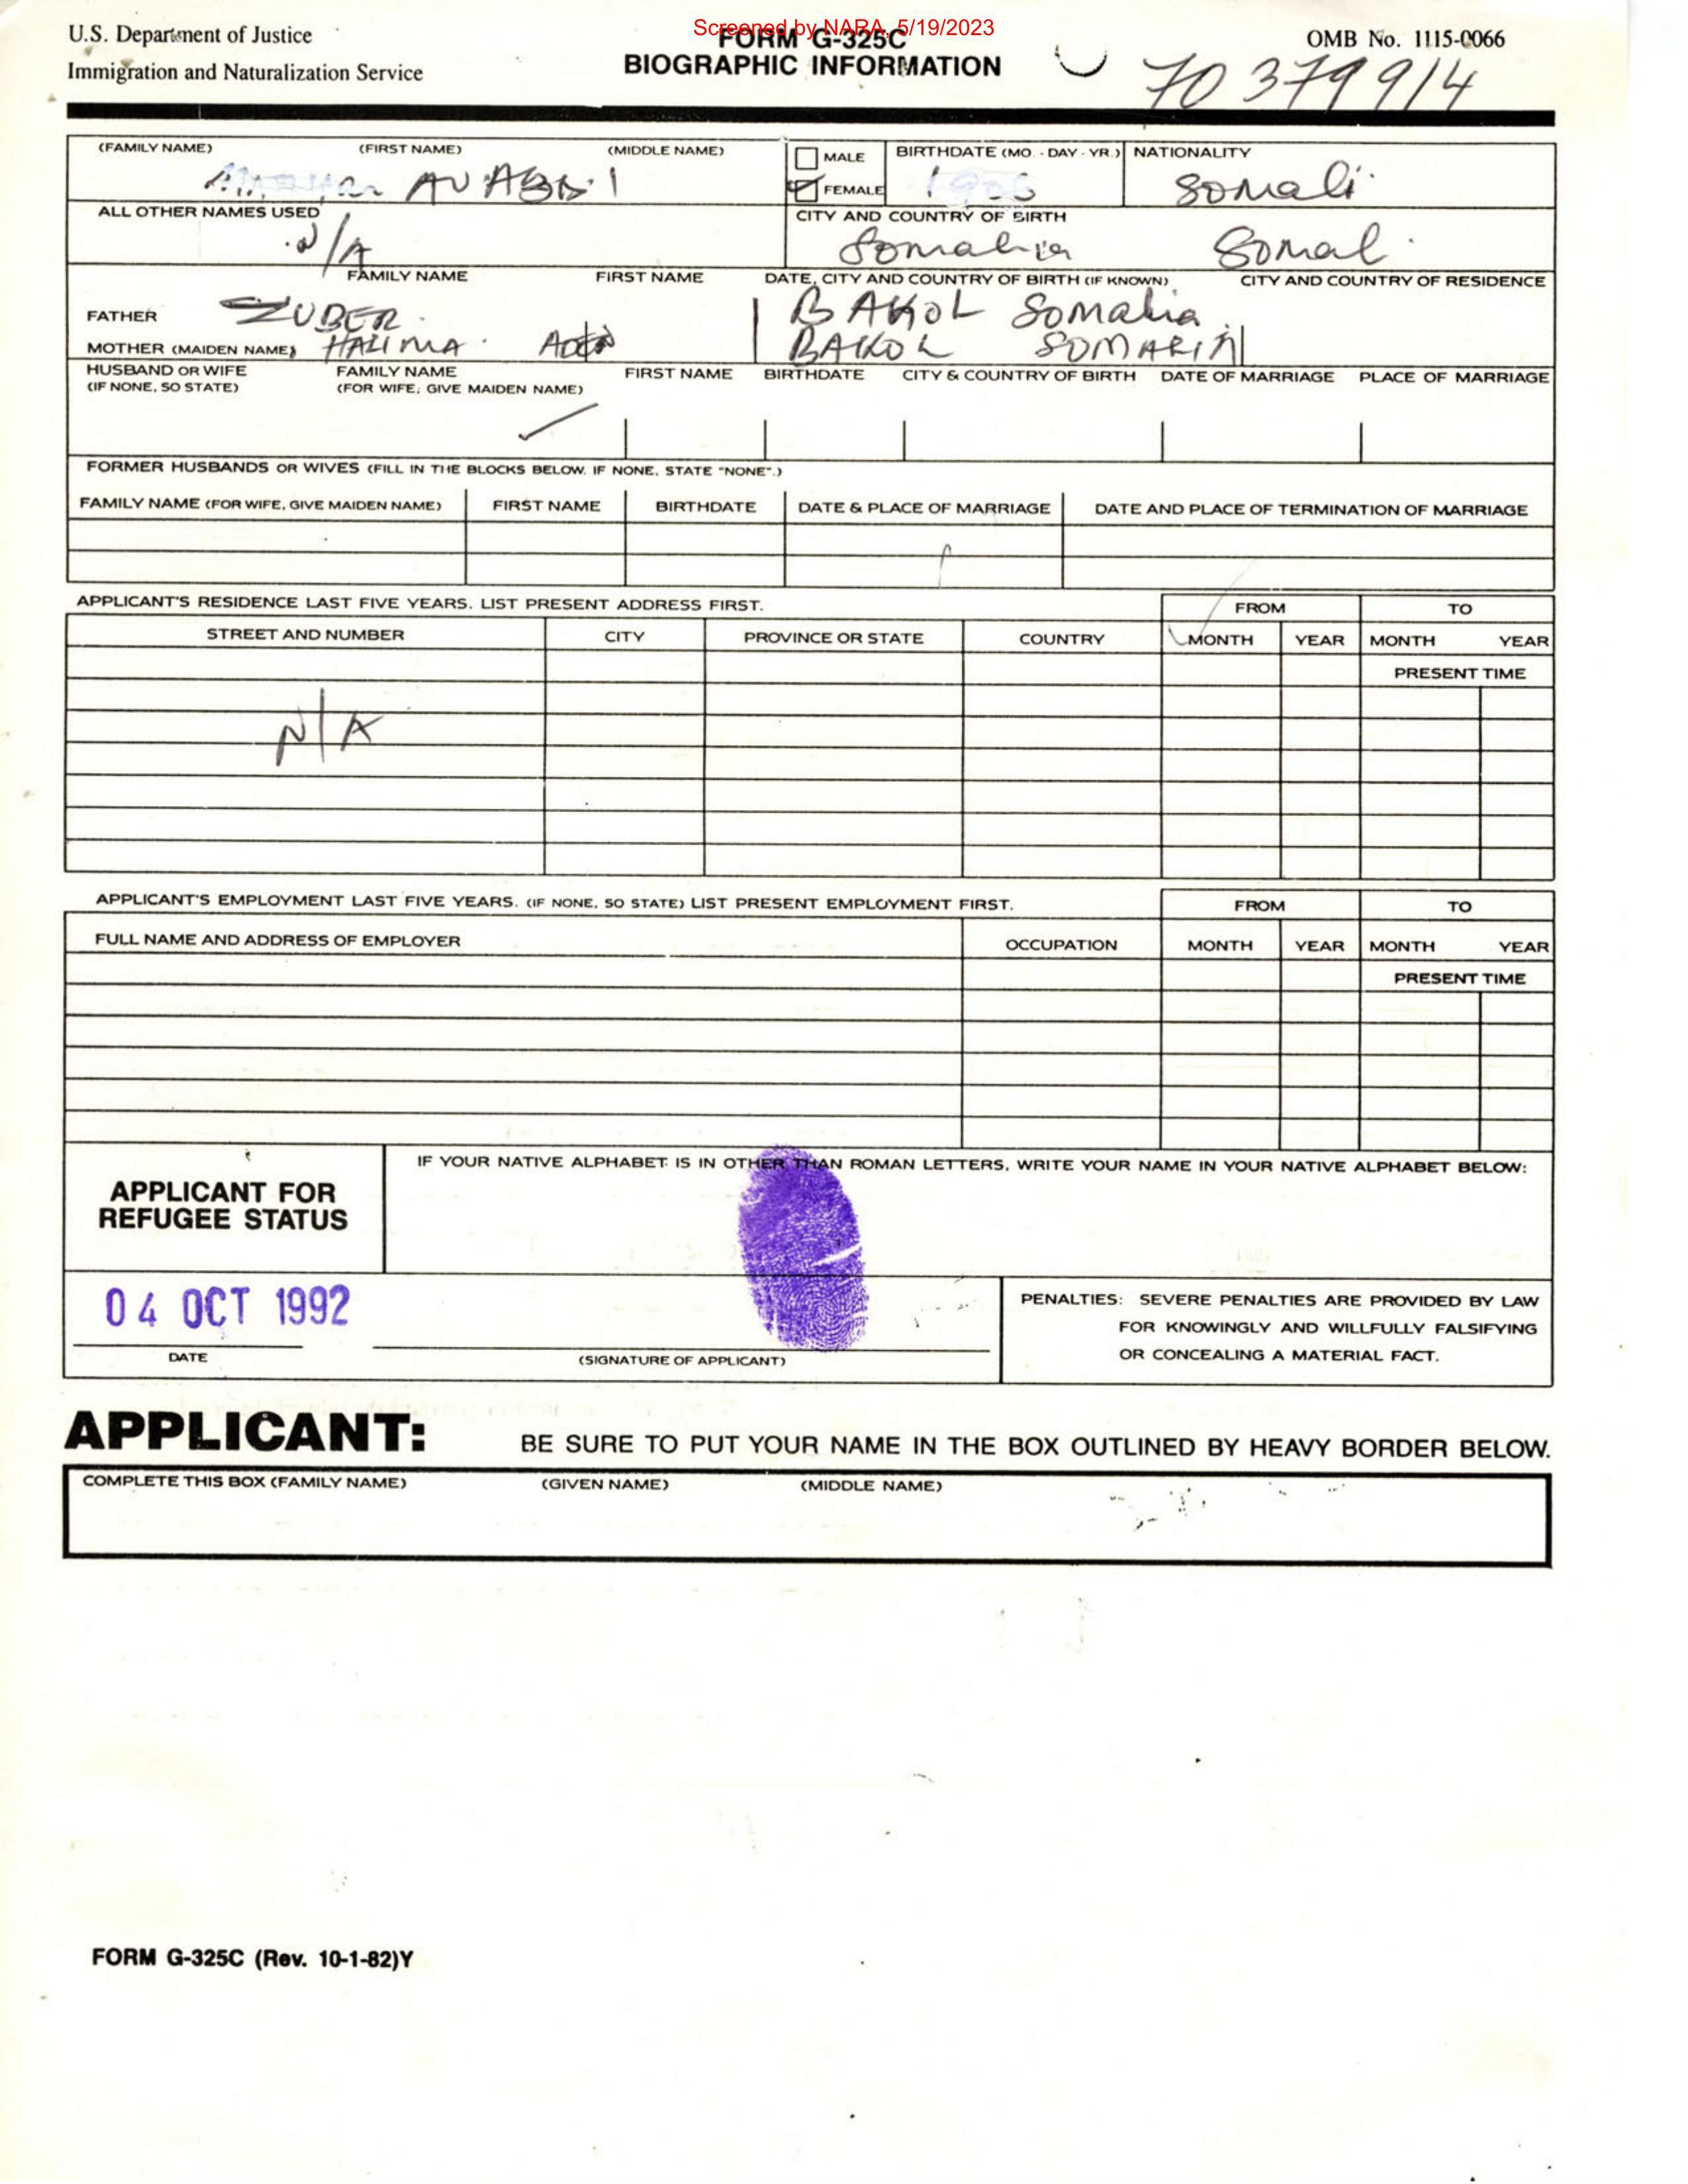 Screened by NARA, 5/19/2023
U.S. Department of Justice
Immigration and Naturalization Service
FORM G-325C
BIOGRAPHIC INFORMATION
OMB No. 1115-0066
70 379 914
(FAMILY NAME) (FIRST NAME) (MIDDLE NAME)
MALE
FEMALE
BIRTHDATE (MO. - DAY - YR.) NATIONALITY
Somali
ALL OTHER NAMES USED
N/A
CITY AND COUNTRY OF BIRTH
Somalia Somal
FAMILY NAME FIRST NAME DATE, CITY AND COUNTRY OF BIRTH (IF KNOWN) CITY AND COUNTRY OF RESIDENCE
FATHER ZUBER BAKOL Somalia
MOTHER (MAIDEN NAME) HALIMA BAKOL
HUSBAND OR WIFE
(IF NONE, SO STATE)
FAMILY NAME
(FOR WIFE, GIVE MAIDEN NAME)
FIRST NAME BIRTHDATE CITY & COUNTRY OF BIRTH DATE OF MARRIAGE PLACE OF MARRIAGE
FORMER HUSBANDS OR WIVES (FILL IN THE BLOCKS BELOW. IF NONE, STATE "NONE".)
FAMILY NAME (FOR WIFE, GIVE MAIDEN NAME) FIRST NAME BIRTHDATE DATE & PLACE OF MARRIAGE DATE AND PLACE OF TERMINATION OF MARRIAGE
APPLICANT'S RESIDENCE LAST FIVE YEARS. LIST PRESENT ADDRESS FIRST. FROM TO
STREET AND NUMBER CITY PROVINCE OR STATE COUNTRY MONTH YEAR MONTH YEAR
PRESENT TIME
N/A
APPLICANT'S EMPLOYMENT LAST FIVE YEARS. (IF NONE, SO STATE) LIST PRESENT EMPLOYMENT FIRST. FROM TO
FULL NAME AND ADDRESS OF EMPLOYER OCCUPATION MONTH YEAR MONTH YEAR
PRESENT TIME
APPLICANT FOR
REFUGEE STATUS
IF YOUR NATIVE ALPHABET IS IN OTHER THAN ROMAN LETTERS, WRITE YOUR NAME IN YOUR NATIVE ALPHABET BELOW:
04 OCT 1992
DATE
(SIGNATURE OF APPLICANT)
PENALTIES: SEVERE PENALTIES ARE PROVIDED BY LAW
FOR KNOWINGLY AND WILLFULLY FALSIFYING
OR CONCEALING A MATERIAL FACT.
APPLICANT: BE SURE TO PUT YOUR NAME IN THE BOX OUTLINED BY HEAVY BORDER BELOW.
COMPLETE THIS BOX (FAMILY NAME) (GIVEN NAME) (MIDDLE NAME)
FORM G-325C (Rev. 10-1-82)Y